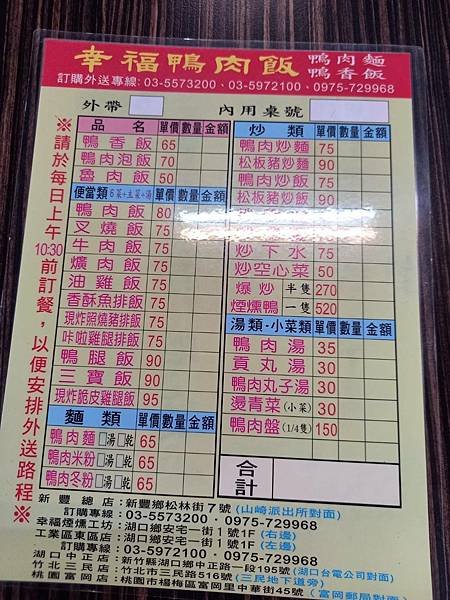 幸福鴨肉飯 鴨肉麵 鴨香飯
訂購外送專線: 03-5573200、03-5972100、0975-729968
外帶 內用桌號
※請於每日上午10:30前訂餐，以便安排外送路程※
品名 單價 數量 金額
鴨香飯 65
鴨肉泡飯 70
魯肉飯 50
便當類 6菜+主菜+湯 單價 數量 金額
鴨肉飯 80
叉燒飯 75
牛肉飯 75
爌肉飯 75
油雞飯 75
香酥魚排飯 75
現炸照燒豬排飯 75
咔啦雞腿排飯 75
鴨腿飯 90
三寶飯 90
現炸脆皮雞腿飯 95
麵類 單價 數量 金額
鴨肉麵 □湯□乾 65
鴨肉米粉 □湯□乾 65
鴨肉冬粉 □湯□乾 65
炒類 單價 數量 金額
鴨肉炒麵 75
松板豬炒麵 90
鴨肉炒飯 75
松板豬炒飯 90
炒下水 75
炒空心菜 50
爆炒 半隻 270
煙燻鴨 一隻 520
湯類·小菜類 單價 數量 金額
鴨肉湯 35
貢丸湯 30
鴨肉丸子湯 30
燙青菜 (小菜) 30
鴨肉盤 (1/4隻) 150
合計
新豐總店:新豐鄉松林街7號(山崎派出所對面)
訂購專線:03-5573200·0975-729968
幸福煙燻工坊:湖口鄉安宅一街1號1F(右邊)
工業區東區店:湖口鄉安宅一街1號1F(左邊)
訂購專線:03-5972100·0975-729968
湖口中正店:新竹縣湖口鄉中正路一段195號(湖口台電公司對面)
竹北三民店:竹北市三民路516號(三民地下道旁)
桃園富岡店:桃園市楊梅區富岡里中華街45號(富岡郵局對面)